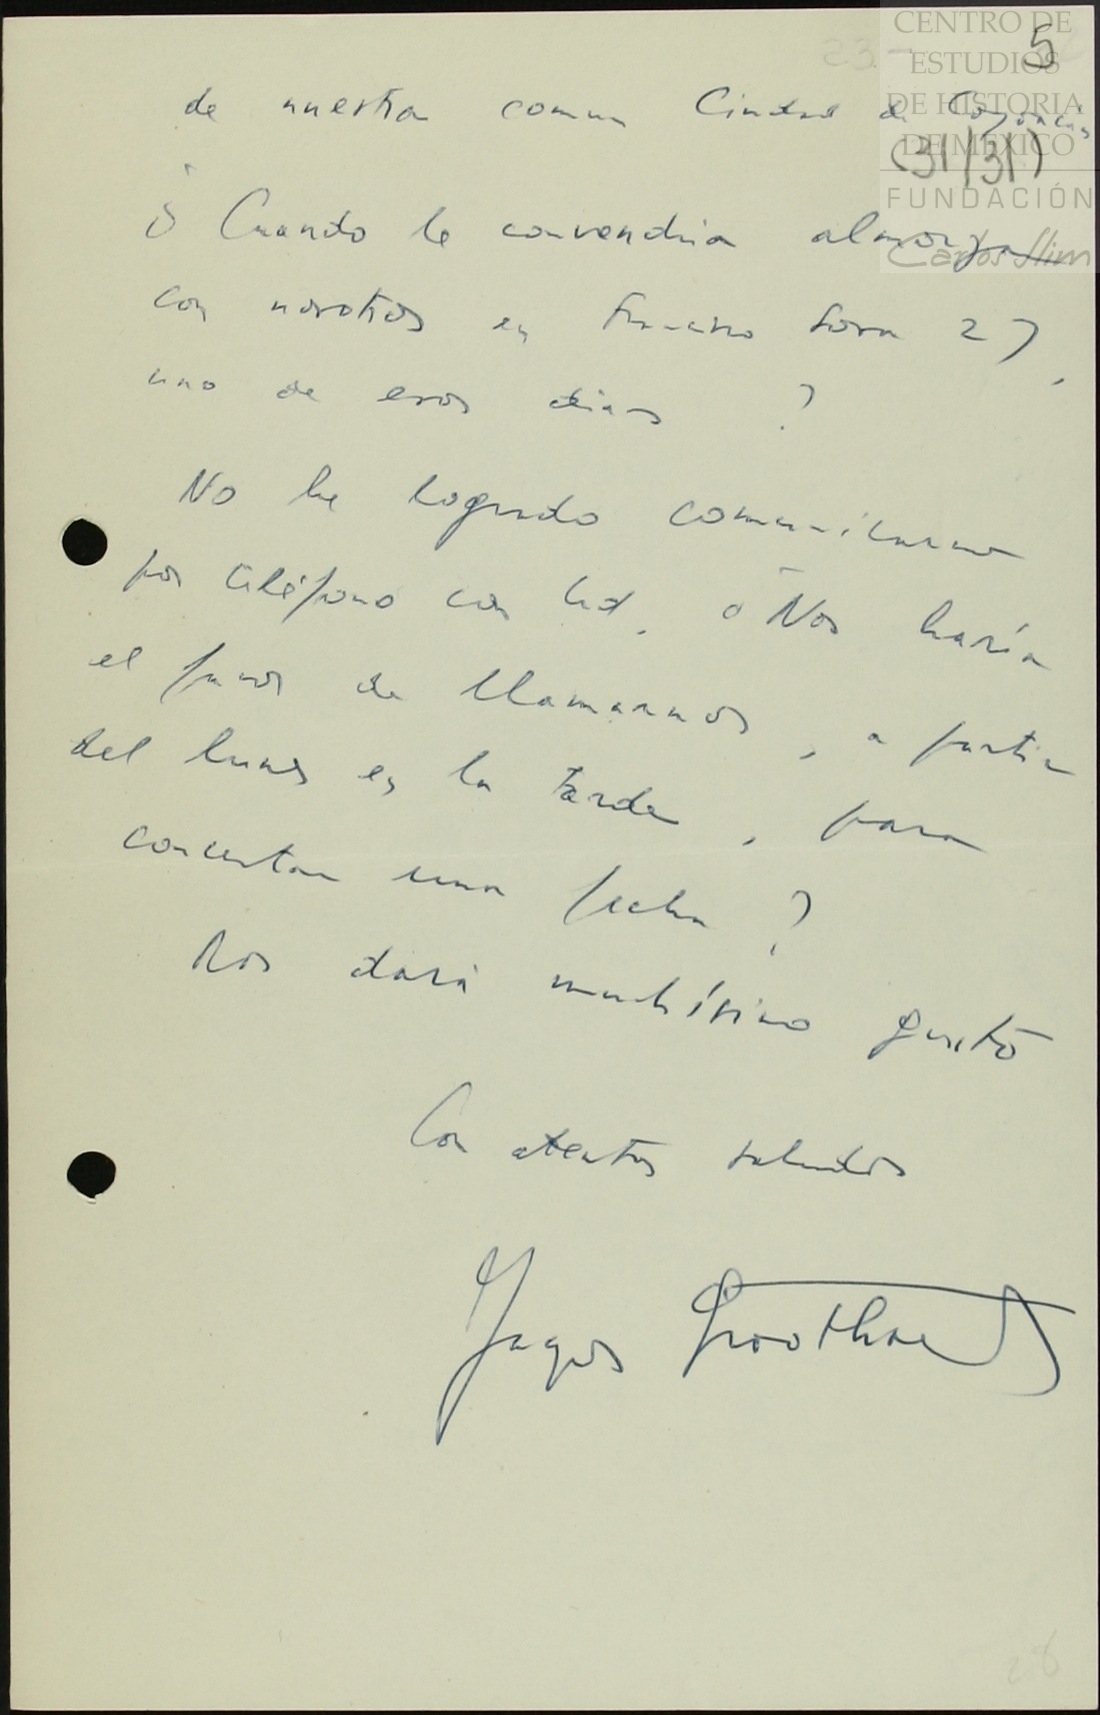 CENTRO DE
ESTUDIOS
DE HISTORIA
DE MÉXICO
FUNDACIÓN
Carlos Slim
23.-
5
(31/31)
de nuestra comun Ciudad de Coyoacán
¿ Cuando le convendria almorzar
con nosotros en Francisco Sosa 27,
uno de esos dias ?
No he logrado comunicarme
por teléfono con Ud. ¿ Nos haría
el favor de llamarnos, a partir
del lunes en la tarde, para
concertar una fecha ?
Nos dará muchísimo gusto
Con atentos saludos
Jaques Groothaert
28